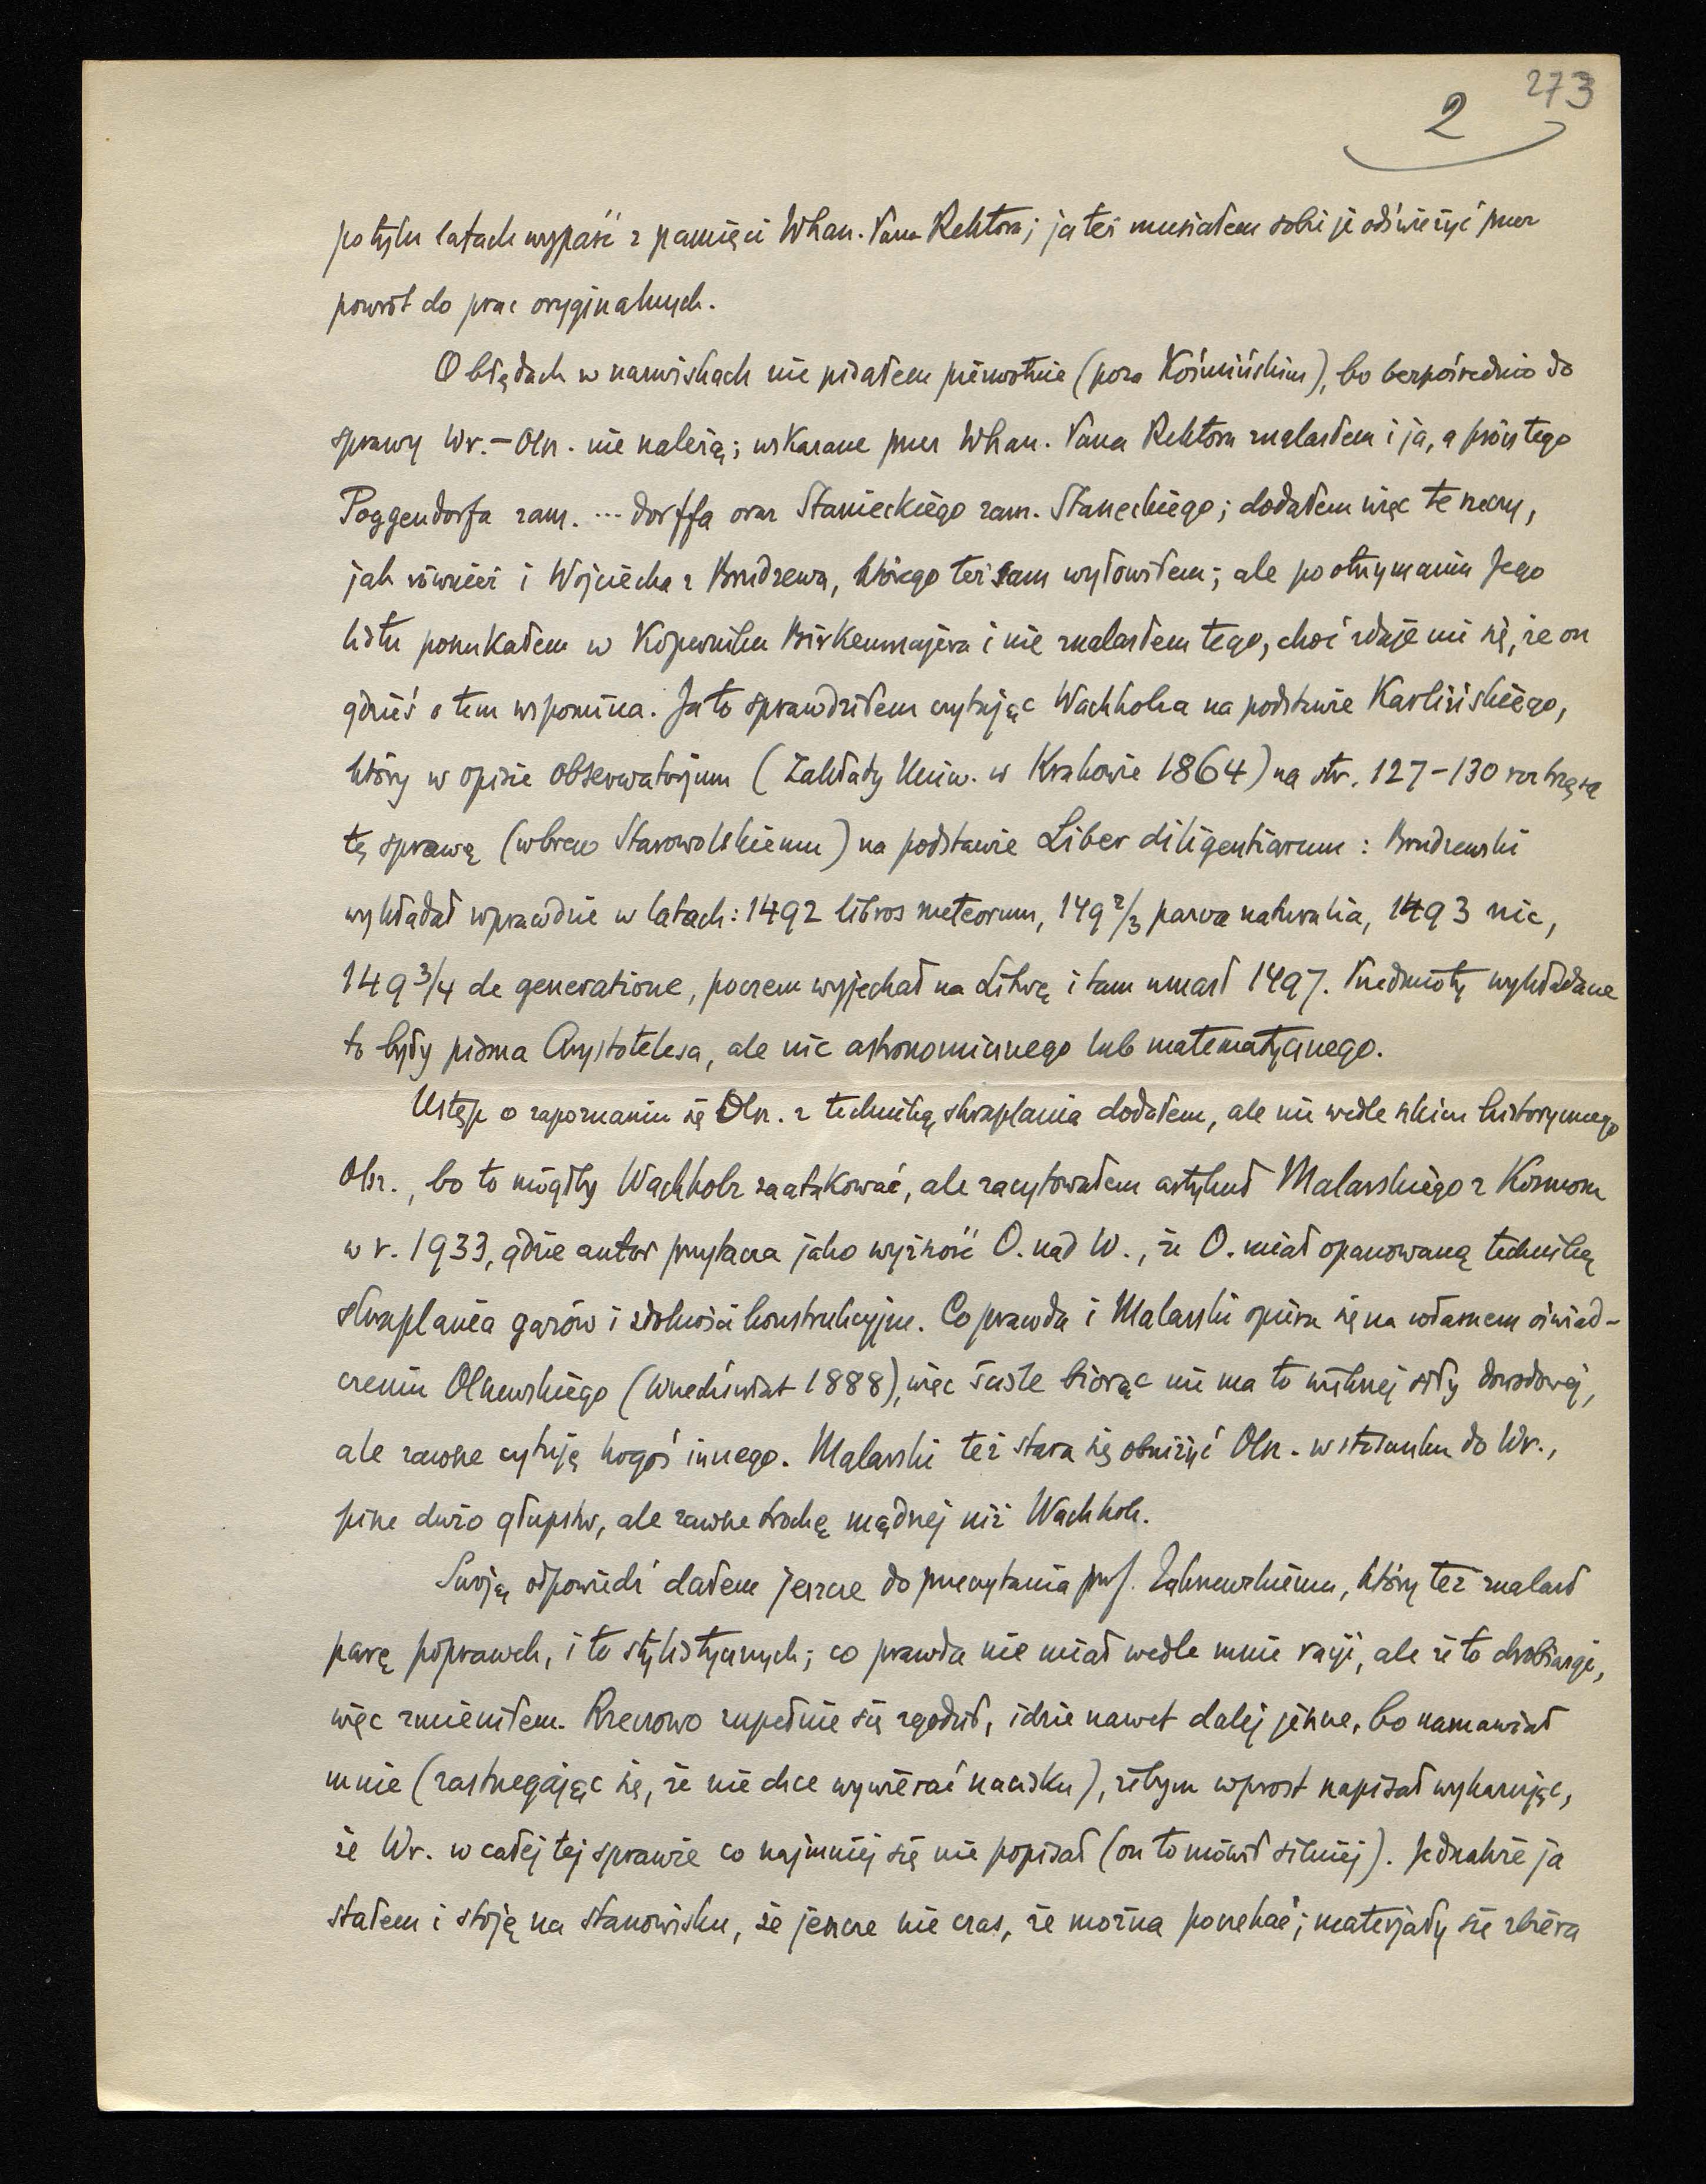 273
2
po tylu latach wypaść z pamięci Whan. Pana Rektora; ja też musiałem sobie je odświeżyć przez
powrót do prac oryginalnych.
O błędach w nazwiskach nie pisałem pierwotnie (poza Koźmińskim), bo bezpośrednio do
sprawy Wr.–Olsz. nie należą; wskazane przez Whan. Pana Rektora znalazłem i ja, a prócz tego
Poggendorfa zam. ...dorffa oraz Stanieckiego zam. Staneckiego; dodałem więc te rzeczy,
jak również i Wojciecha z Brudzewa, którego też sam wyłowiłem; ale po otrzymaniu Jego
listu poszukałem w Koperniku Birkenmajera i nie znalazłem tego, choć zdaje mi się, że on
gdzieś o tem wspomina. Ja to sprawdziłem czytając Wachholza na podstawie Karlińskiego,
który w opisie obserwatorjum (Zakłady Uniw. w Krakowie 1864) na str. 127–130 roztrząsa
tę sprawę (wbrew Starowolskiemu) na podstawie Liber diligentiarum: Brudzewski
wykładał wprawdzie w latach: 1492 libros meteorum, 149 2/3 parva naturalia, 1493 nic,
149 3/4 de generatione, poczem wyjechał na Litwę i tam umarł 1497. Przedmioty wykładane
to były pisma Arystotelesa, ale nic astronomicznego lub matematycznego.
Ustęp o zapoznaniu się Olsz. z techniką skraplania dodałem, ale nie wedle szkicu historycznego
Olsz., bo to mógłby Wachholz zaatakować, ale zacytowałem artykuł Malarskiego z Kosmosu
w r. 1933, gdzie autor przytacza jako wyższość O. nad W., że O. miał opanowaną technikę
skraplania gazów i zdolności konstrukcyjne. Co prawda i Malarski opiera się na własnem oświad-
czeniu Olszewskiego (Wszechświat 1888), więc ściśle biorąc nie ma to większej siły dowodowej,
ale zawsze cytuję kogoś innego. Malarski też stara się obniżyć Olsz. w stosunku do Wr.,
pisze dużo głupstw, ale zawsze trochę mądrzej niż Wachholz.
Swoją odpowiedź dałem jeszcze do przeczytania prof. Zakrzewskiemu, który też znalazł
parę poprawek, i to stylistycznych; co prawda nie miał wedle mnie racji, ale że to drobiazgi,
więc zmieniłem. Rzeczowo zupełnie się zgodził, idzie nawet dalej jeszcze, bo namawiał
mnie (zastrzegając się, że nie chce wywierać nacisku), żebym wprost napisał wykazując,
że Wr. w całej tej sprawie co najmniej się nie popisał (on to mówił silniej). Jednakże ja
stałem i stoję na stanowisku, że jeszcze nie czas, że można poczekać; materjały się zbiera